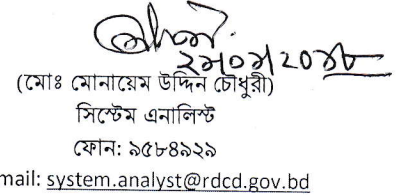 (মোঃ মোনায়েম উদ্দিন চৌধুরী)
সিস্টেম এনালিস্ট
ফোন: ৯৫৮৪৯২৯
mail: system.analyst@rdcd.gov.bd